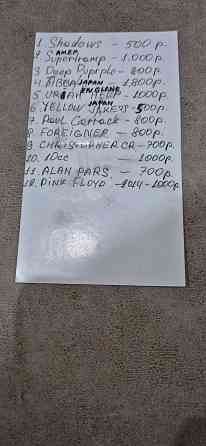 1 Shadows - 500 р.
2 Supertramp АМЕР - 1.000 р.
3 Deep Purple - 800 р.
4 ABBA JAPAN - 1.800р.
5 URIAH HEEP ENGLAND - 1000р.
6 YELLOW JAKETS JAPAN - 500р.
7. Paul Carrack - 800р.
8. FOREIGNER - 800р.
9 CHRIS CR - 700р.
10. 10cc - 1000р.
11. ALAN PARS. - 700р.
12. PINK FLOYD - 2014 - 1000р.